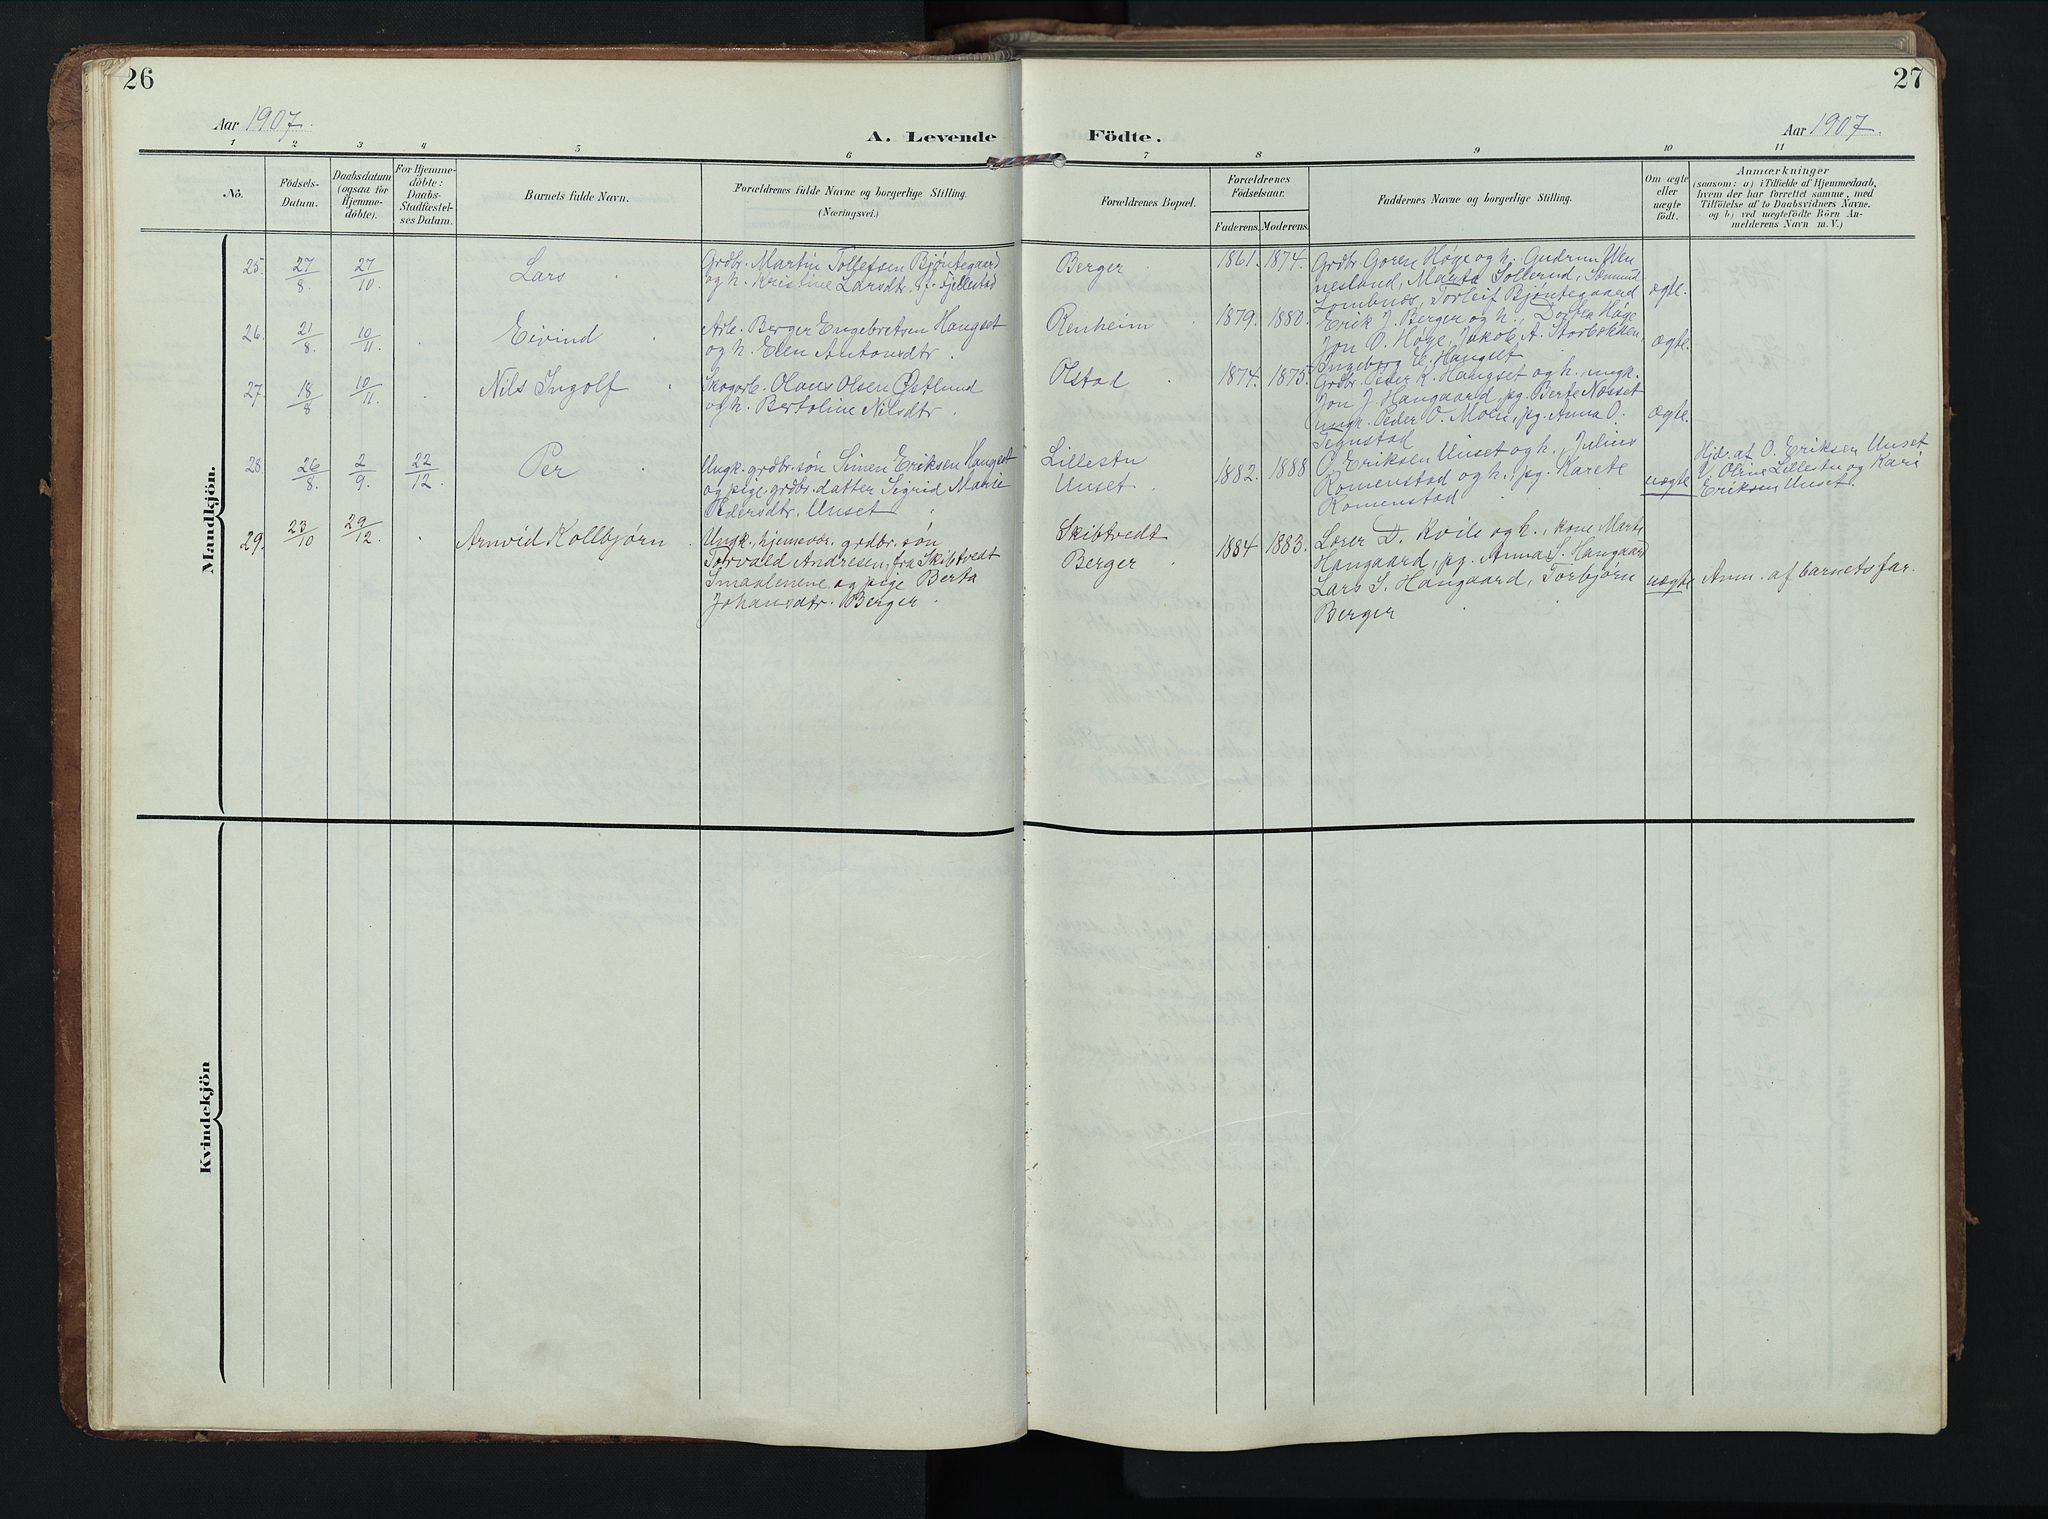 26
27
Aar 1907.
A. Levende
Födte.
Aar 1907.
1 2 3 4 5 6 7 8 9 10 11
No.
Födsels-
Datum.
Daabsdatum
(ogsaa for
Hjemme-
döbte).
For Hjemme-
döbte:
Daabs-
Stadfæstel-
ses Datum.
Barnets fulde Navn.
Forældrenes fulde Navne og borgerlige Stilling.
(Næringsvei.)
Forældrenes Bopæl.
Forældrenes
Födselsaar.
Faderens. Moderens.
Faddernes Navne og borgerlige Stilling.
Om ægte
eller
uægte
födt.
Anmærkninger
(saasom: a) i Tilfælde af Hjemmedaab,
hvem der har forrettet samme, med
Tilföielse af to Daabsvidners Navne.
og b) ved uægtefödte Börn An-
melderens Navn m. V.)
Mandkjön.
25. 27/8 27/10 Lars
Grdbr. Martin Tollefsen Bjøntegaard
og h. Kristine Larsdtr. f. Fjellestad
Berger 1861. 1874.
Grdbr. Goren Høge og h. Gudrun Wen
nesland, Marta Sollerud, Sæmund
Lombnæs, Torleif Bjøntegaard
ægte.
26. 21/8 10/11 Eivind
Arb. Berger Engebretsen Hangset
og h. Elen Antonsdtr.
Renheim 1879. 1880.
Erik J. Berger og h., Dortea Høge
Jon O. Høge, Jakob A. Storbekken,
Ingeborg E. Hangset
ægte.
27. 18/8 10/11 Nils Ingolf
Skogarb. Olaus Olsen Østlund
og h. Bertoline Nilsdtr.
Olstad 1874. 1875.
Grdbr. Peder K. Hangset og h., ungk.
Jon J. Haugaard, pg. Berte Næsset
ungk. Peder O. Moen, pg. Anna O.
Tegnstad
ægte.
28. 26/8 2/9. 22/12 Per
Ungk. grdbr. søn Simen Eriksen Hangset
og pige grdbr. datter Sigrid Marie
Pedersdtr. Unset
Lillestu
Unset. 1882. 1888
O. Eriksen Unset og h., Julius
Romenstad og h., pg. Karete
Romenstad
uægte
Hjd. af O. Eriksen Unset
v/ Oline Lillestu og Kari
Eriksen Unset.
29. 23/10 29/12 Arnvid Kolbjørn
Ungk., hjemmevær. grdbr. søn
Torvald Andresen, fra Skibtvedt
Smaalenene og pige Berta
Johansdtr. Berger
Skibtvedt
Berger 1884 1883.
Lærer D. Kvile og h., kone Marte
Haugaard, pg. Anna S. Haugaard
Lars S. Haugaard, Torbjørn
Berger
uægte Anm. af barnets far.
Kvindekjön